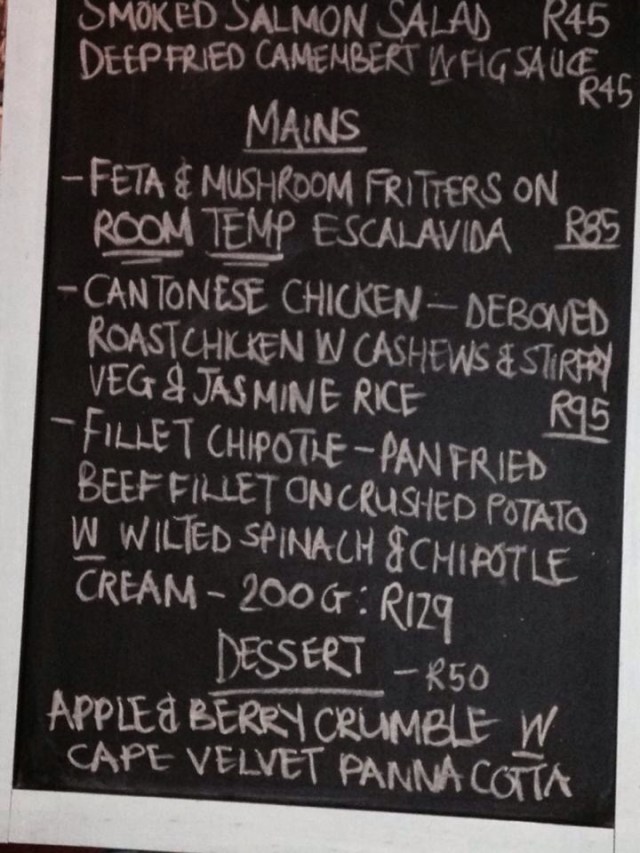 SMOKED SALMON SALAD R45
DEEPFRIED CAMEMBERT W FIG SAUCE
R45
MAINS
- FETA & MUSHROOM FRITTERS ON
ROOM TEMP ESCALAVIDA R85
- CANTONESE CHICKEN - DEBONED
ROAST CHICKEN W CASHEWS & STIRFRY
VEG & JASMINE RICE R95
- FILLET CHIPOTLE - PAN FRIED
BEEF FILLET ON CRUSHED POTATO
W WILTED SPINACH & CHIPOTLE
CREAM - 200G: R129
DESSERT - R50
APPLE & BERRY CRUMBLE W
CAPE VELVET PANNA COTTA